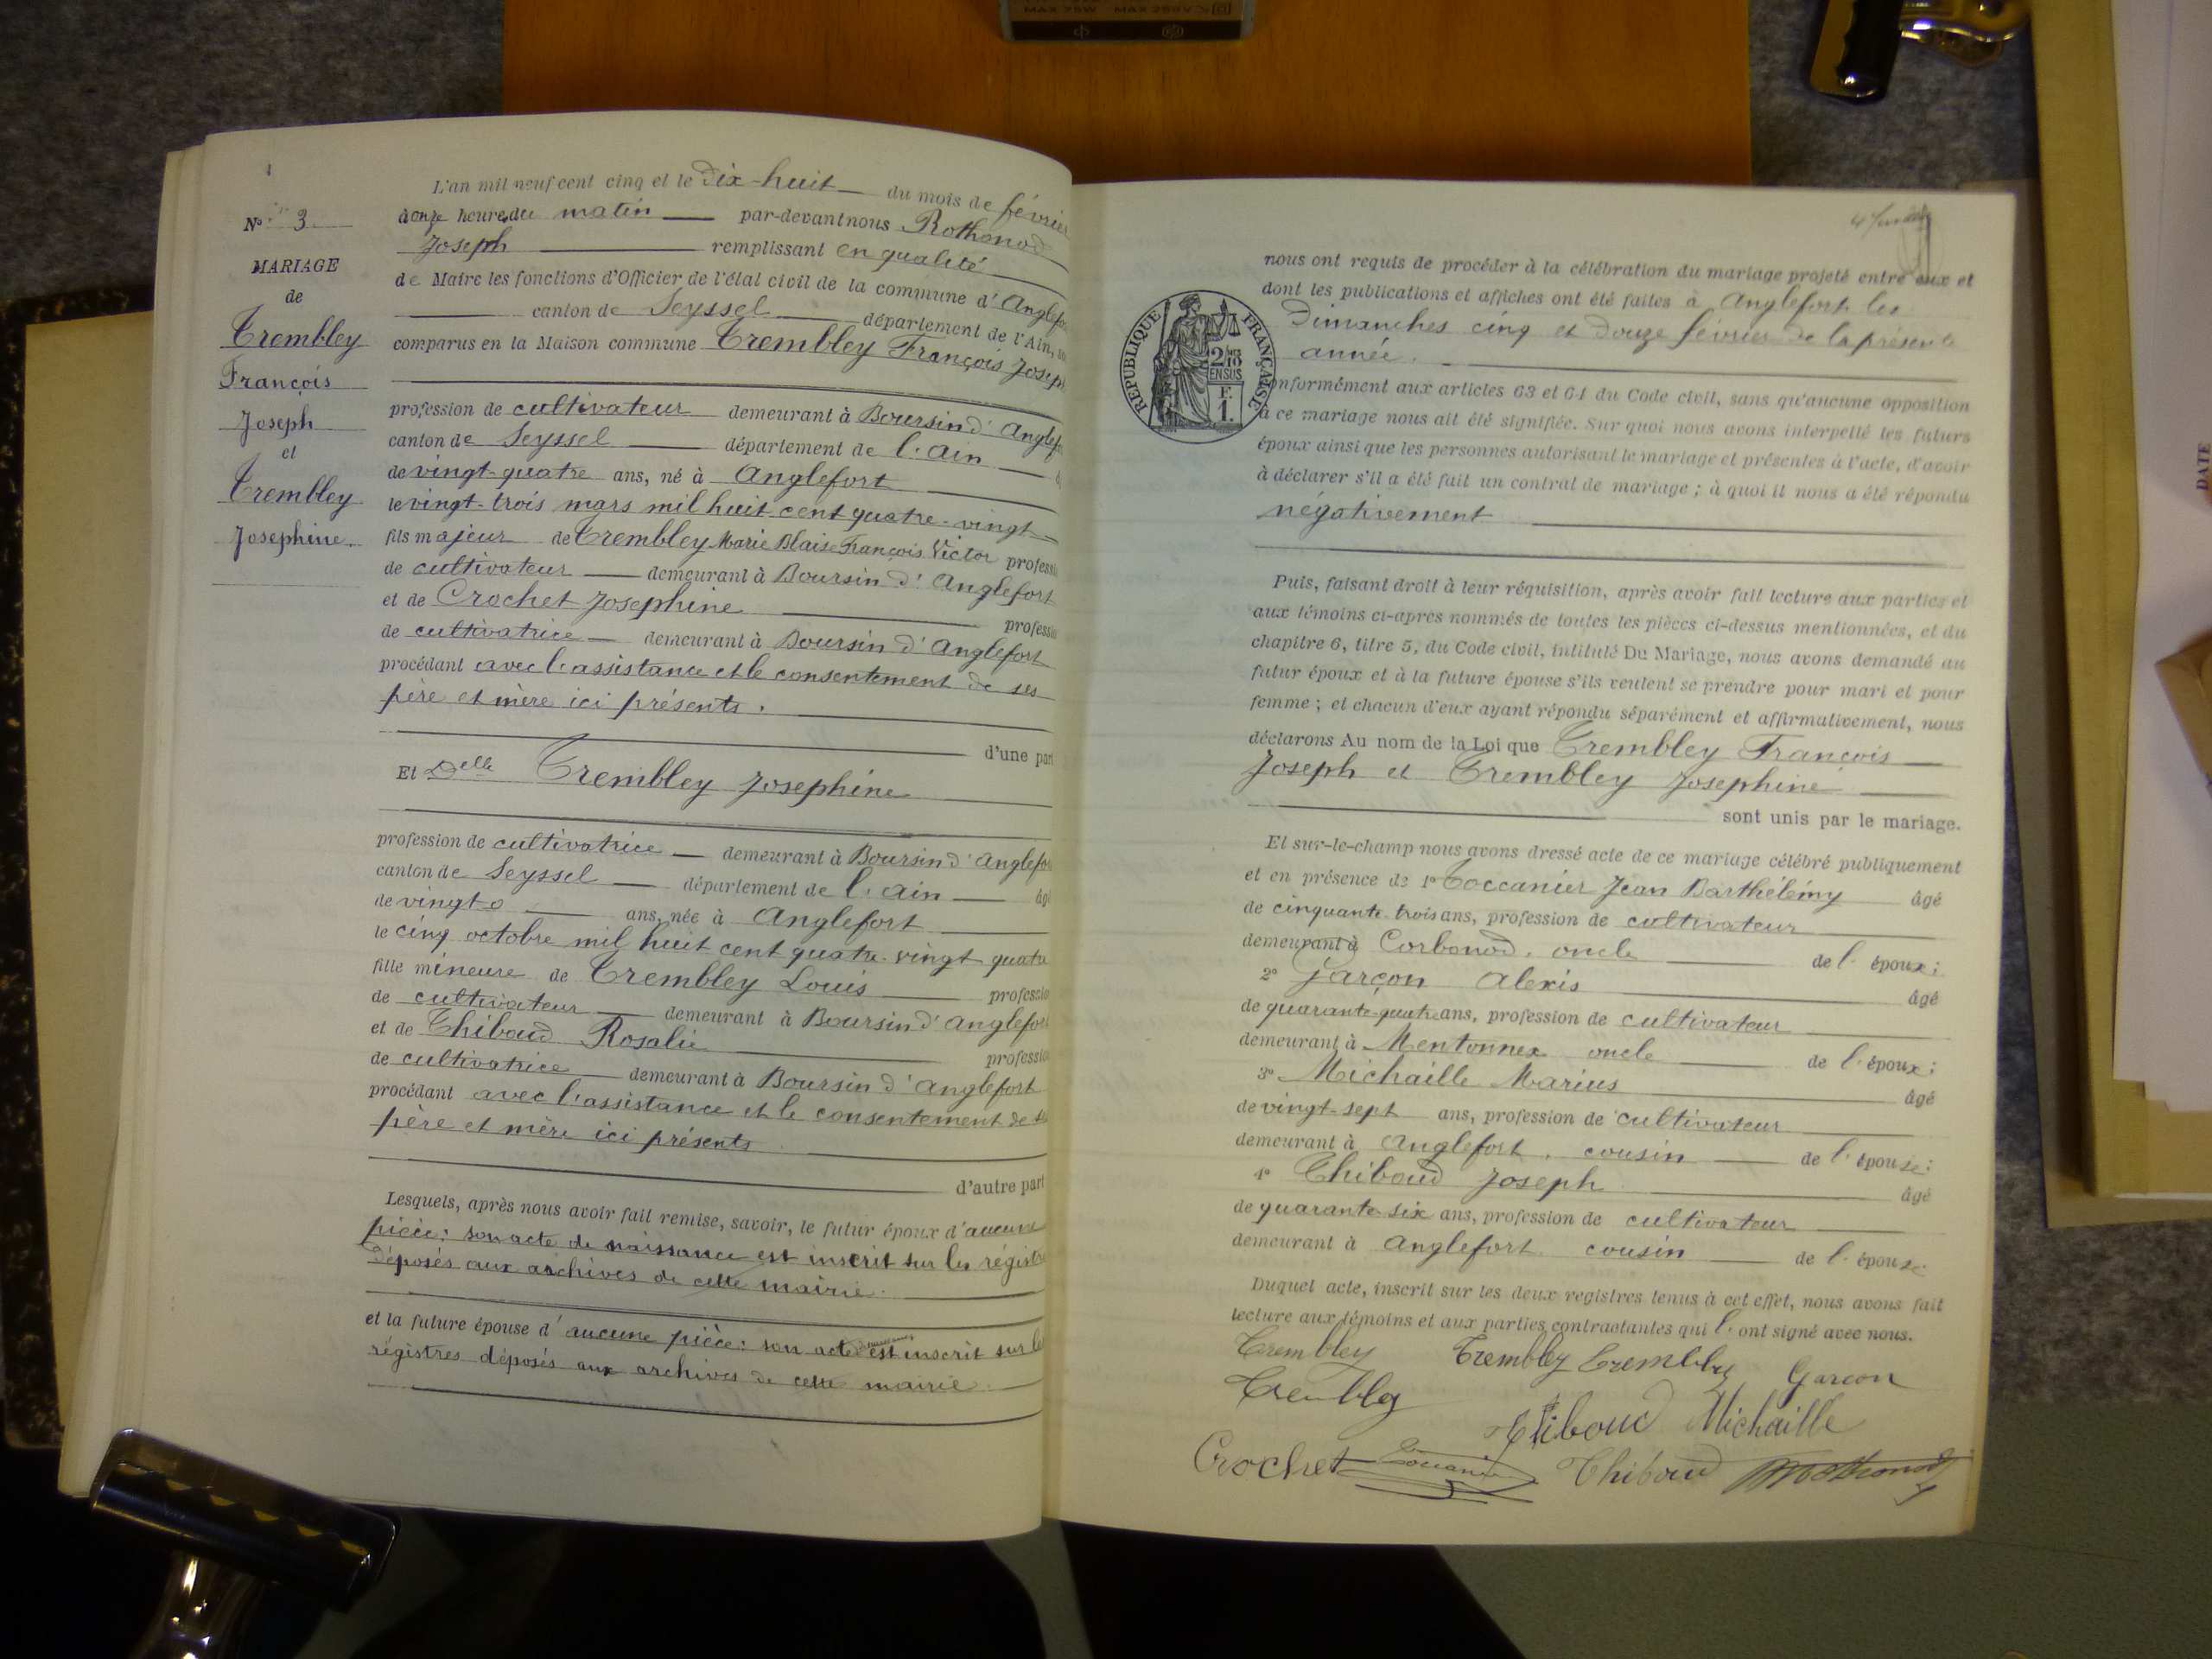 MAX 75W MAX 250V
N° 3
MARIAGE
de
Trembley
François
Joseph
et
Trembley
Josephine
L'an mil neuf cent cinq et le dix-huit du mois de février
à onze heures du matin par-devant nous Rothonod
Joseph remplissant en qualité
de Maire les fonctions d'Officier de l'état civil de la commune d'Anglefo
canton de Seyssel département de l'Ain,
comparus en la Maison commune Trembley François Josep
profession de cultivateur demeurant à Boursin d'Anglef
canton de Seyssel département de l'Ain
de vingt-quatre ans, né à Anglefort
le vingt-trois mars mil huit cent quatre-vingt
fils majeur de Trembley Marie Blaise François Victor professi
de cultivateur demeurant à Boursin d'Anglefort
et de Crochet Josephine professi
de cultivatrice demeurant à Boursin d'Anglefort
procédant avec l'assistance et le consentement de ses
père et mère ici présents.
d'une par
Et Delle Trembley Josephine
profession de cultivatrice demeurant à Boursin d'Anglefo
canton de Seyssel département de l'Ain âg
de vingt ans, née à Anglefort
le cinq octobre mil huit cent quatre-vingt quatre
fille mineure de Trembley Louis profession
de cultivateur demeurant à Boursin d'Anglefor
et de Thiboud Rosalie professio
de cultivatrice demeurant à Boursin d'Anglefort
procédant avec l'assistance et le consentement de s
père et mère ici présents
d'autre part
Lesquels, après nous avoir fait remise, savoir, le futur époux d'aucune
pièce: son acte de naissance est inscrit sur les régistre
déposés aux archives de cette mairie.
et la future épouse d'aucune pièce: son acte de naissance est inscrit sur le
régistres déposés aux archives de cette mairie
nous ont requis de procéder à la célébration du mariage projeté entre eux et
dont les publications et affiches ont été faites à Anglefort les
Dimanches cinq et douze février de la présente
année.
RÉPUBLIQUE FRANÇAISE
conformément aux articles 63 et 64 du Code civil, sans qu'aucune opposition
à ce mariage nous ait été signifiée. Sur quoi nous avons interpellé les futurs
époux ainsi que les personnes autorisant le mariage et présentes à l'acte, d'avoir
à déclarer s'il a été fait un contrat de mariage; à quoi il nous a été répondu
négativement
Puis, faisant droit à leur réquisition, après avoir fait lecture aux parties et
aux témoins ci-après nommés de toutes les pièces ci-dessus mentionnées, et du
chapitre 6, titre 5, du Code civil, intitulé Du Mariage, nous avons demandé au
futur époux et à la future épouse s'ils veulent se prendre pour mari et pour
femme; et chacun d'eux ayant répondu séparément et affirmativement, nous
déclarons Au nom de la Loi que Trembley François
Joseph et Trembley Josephine
sont unis par le mariage.
Et sur-le-champ nous avons dressé acte de ce mariage célébré publiquement
et en présence de 1° Toccanier Jean Barthélémy âgé
de cinquante-trois ans, profession de cultivateur
demeurant à Corbonod, oncle de l'époux;
2° Garçon Alexis âgé
de quarante-quatre ans, profession de cultivateur
demeurant à Mentonnex oncle de l'époux;
3° Michaille Marius âgé
de vingt-sept ans, profession de cultivateur
demeurant à Anglefort, cousin de l'épouse;
4° Thiboud Joseph âgé
de quarante-six ans, profession de cultivateur
demeurant à Anglefort cousin de l'épouse.
Duquel acte, inscrit sur les deux registres tenus à cet effet, nous avons fait
lecture aux témoins et aux parties contractantes qui l'ont signé avec nous.
Trembley Trembley Trembley Garcon
Trembley Thiboud Michaille
Crochet Toccanier Thiboud Rothonod
DATE